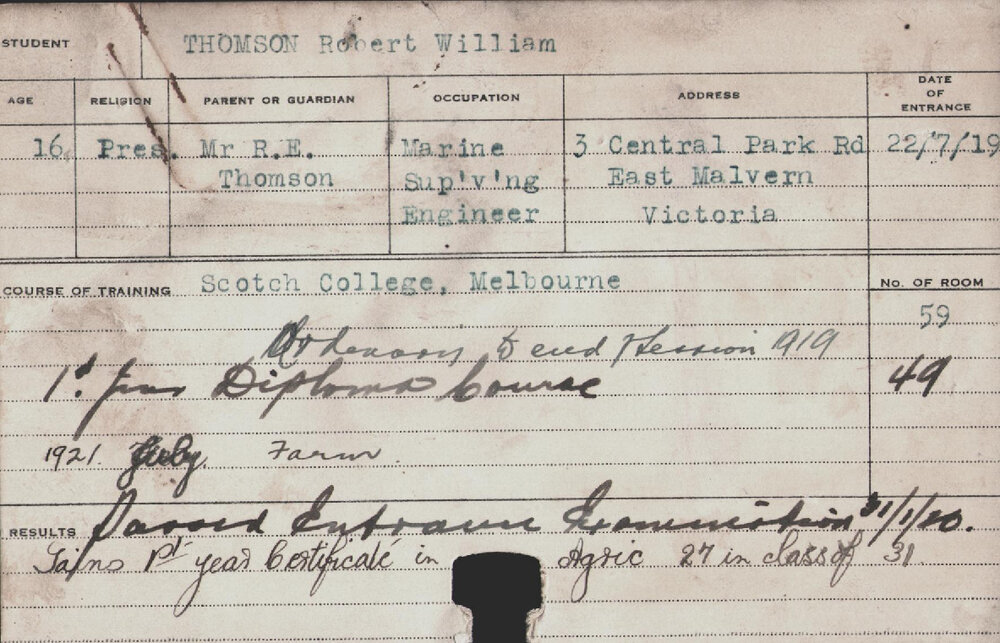 STUDENT THOMSON Robert William
AGE RELIGION PARENT OR GUARDIAN OCCUPATION ADDRESS DATE OF ENTRANCE
16 Pres. Mr R.E. Marine 3 Central Park Rd 22/7/19
Thomson Sup'v'ng East Malvern
Engineer Victoria
COURSE OF TRAINING Scotch College, Melbourne No. OF ROOM
59
Ordinary to end Session 1919
1st year Diploma Course 49
1921. July. Farm.
RESULTS Passed Entrance Examination 31/1/20.
Gains 1st year Certificate in Agric 27 in class of 31.